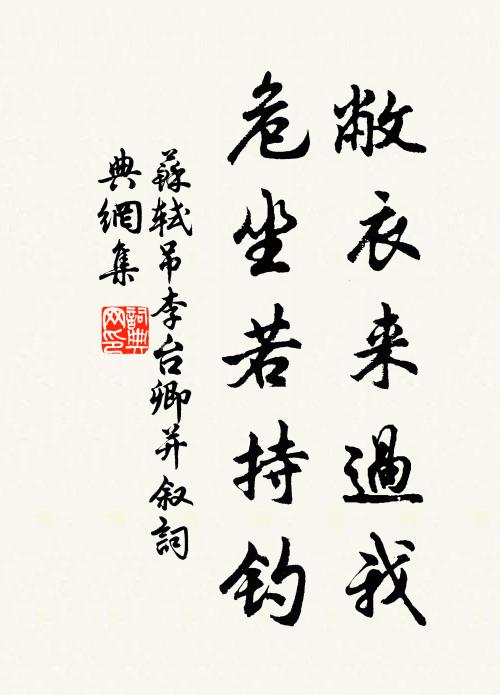 敝衣来過我
危坐若持钓
蘇軾吊李台卿并叙詞
典網集
詞典网印